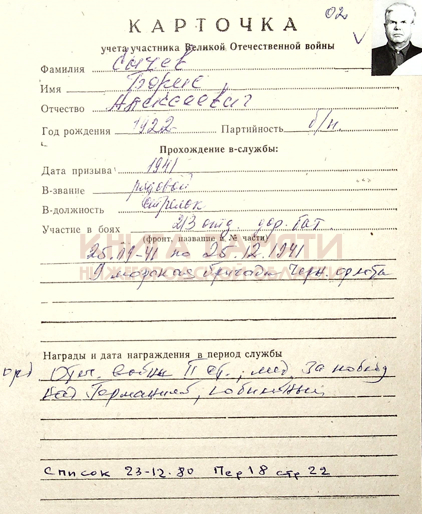 КАРТОЧКА 02
учета участника Великой Отечественной войны
Фамилия Сычев
Имя Борис
Отчество Алексеевич
Год рождения 1922 Партийность б/п.
Прохождение в-службы:
Дата призыва 1941
В-звание рядовой
В-должность стрелок
Участие в боях 213 отд. дор. бат.
(фронт, название и № части)
КНИГА ПАМЯТИ
по 25.12.1941
морская бригада Черн. флота
Награды и дата награждения в период службы
орд Отеч. войны II ст., мед. За победу
над Германией, юбилейные
Список 23-12.80 Пер 18 стр 22